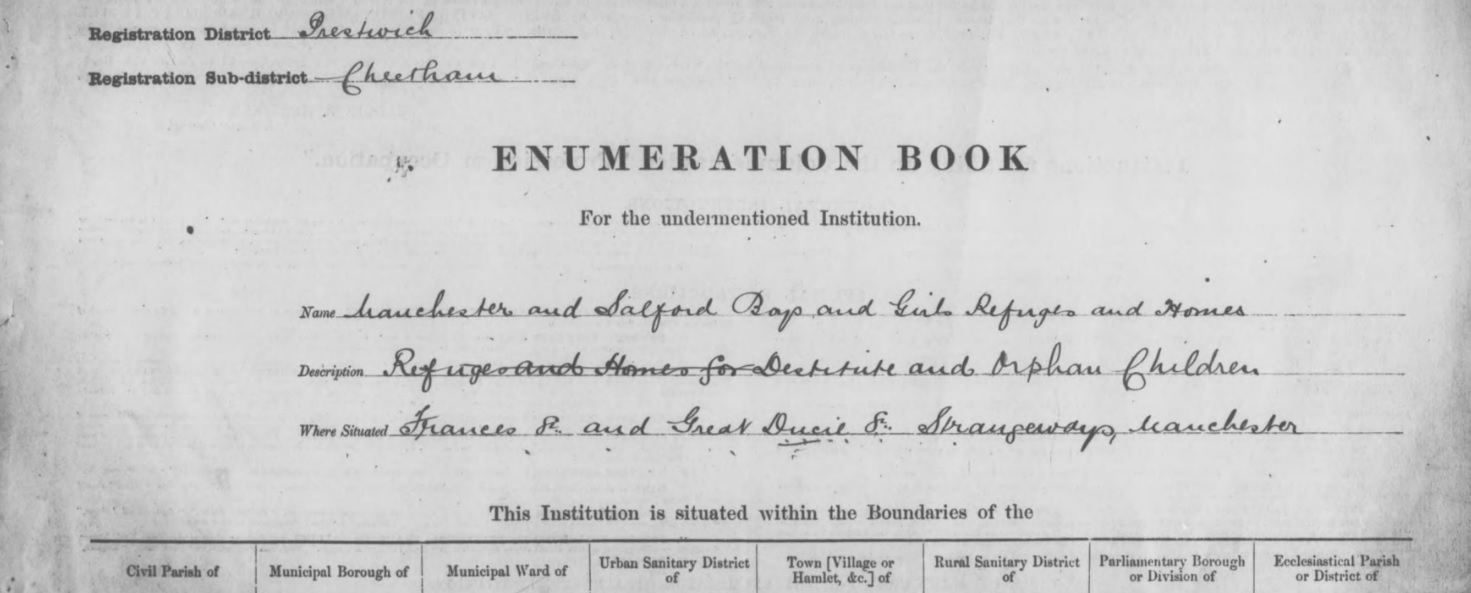 Registration District Prestwich
Registration Sub-district Cheetham
ENUMERATION BOOK
For the undermentioned Institution.
Name Manchester and Salford Boys and Girls Refuges and Homes
Description Refuges and Homes for Destitute and Orphan Children
Where Situated Frances St. and Great Ducie St. Strangeways, Manchester
This Institution is situated within the Boundaries of the
Civil Parish of Municipal Borough of Municipal Ward of Urban Sanitary District of Town [Village or Hamlet, &c.] of Rural Sanitary District of Parliamentary Borough or Division of Ecclesiastical Parish or District of